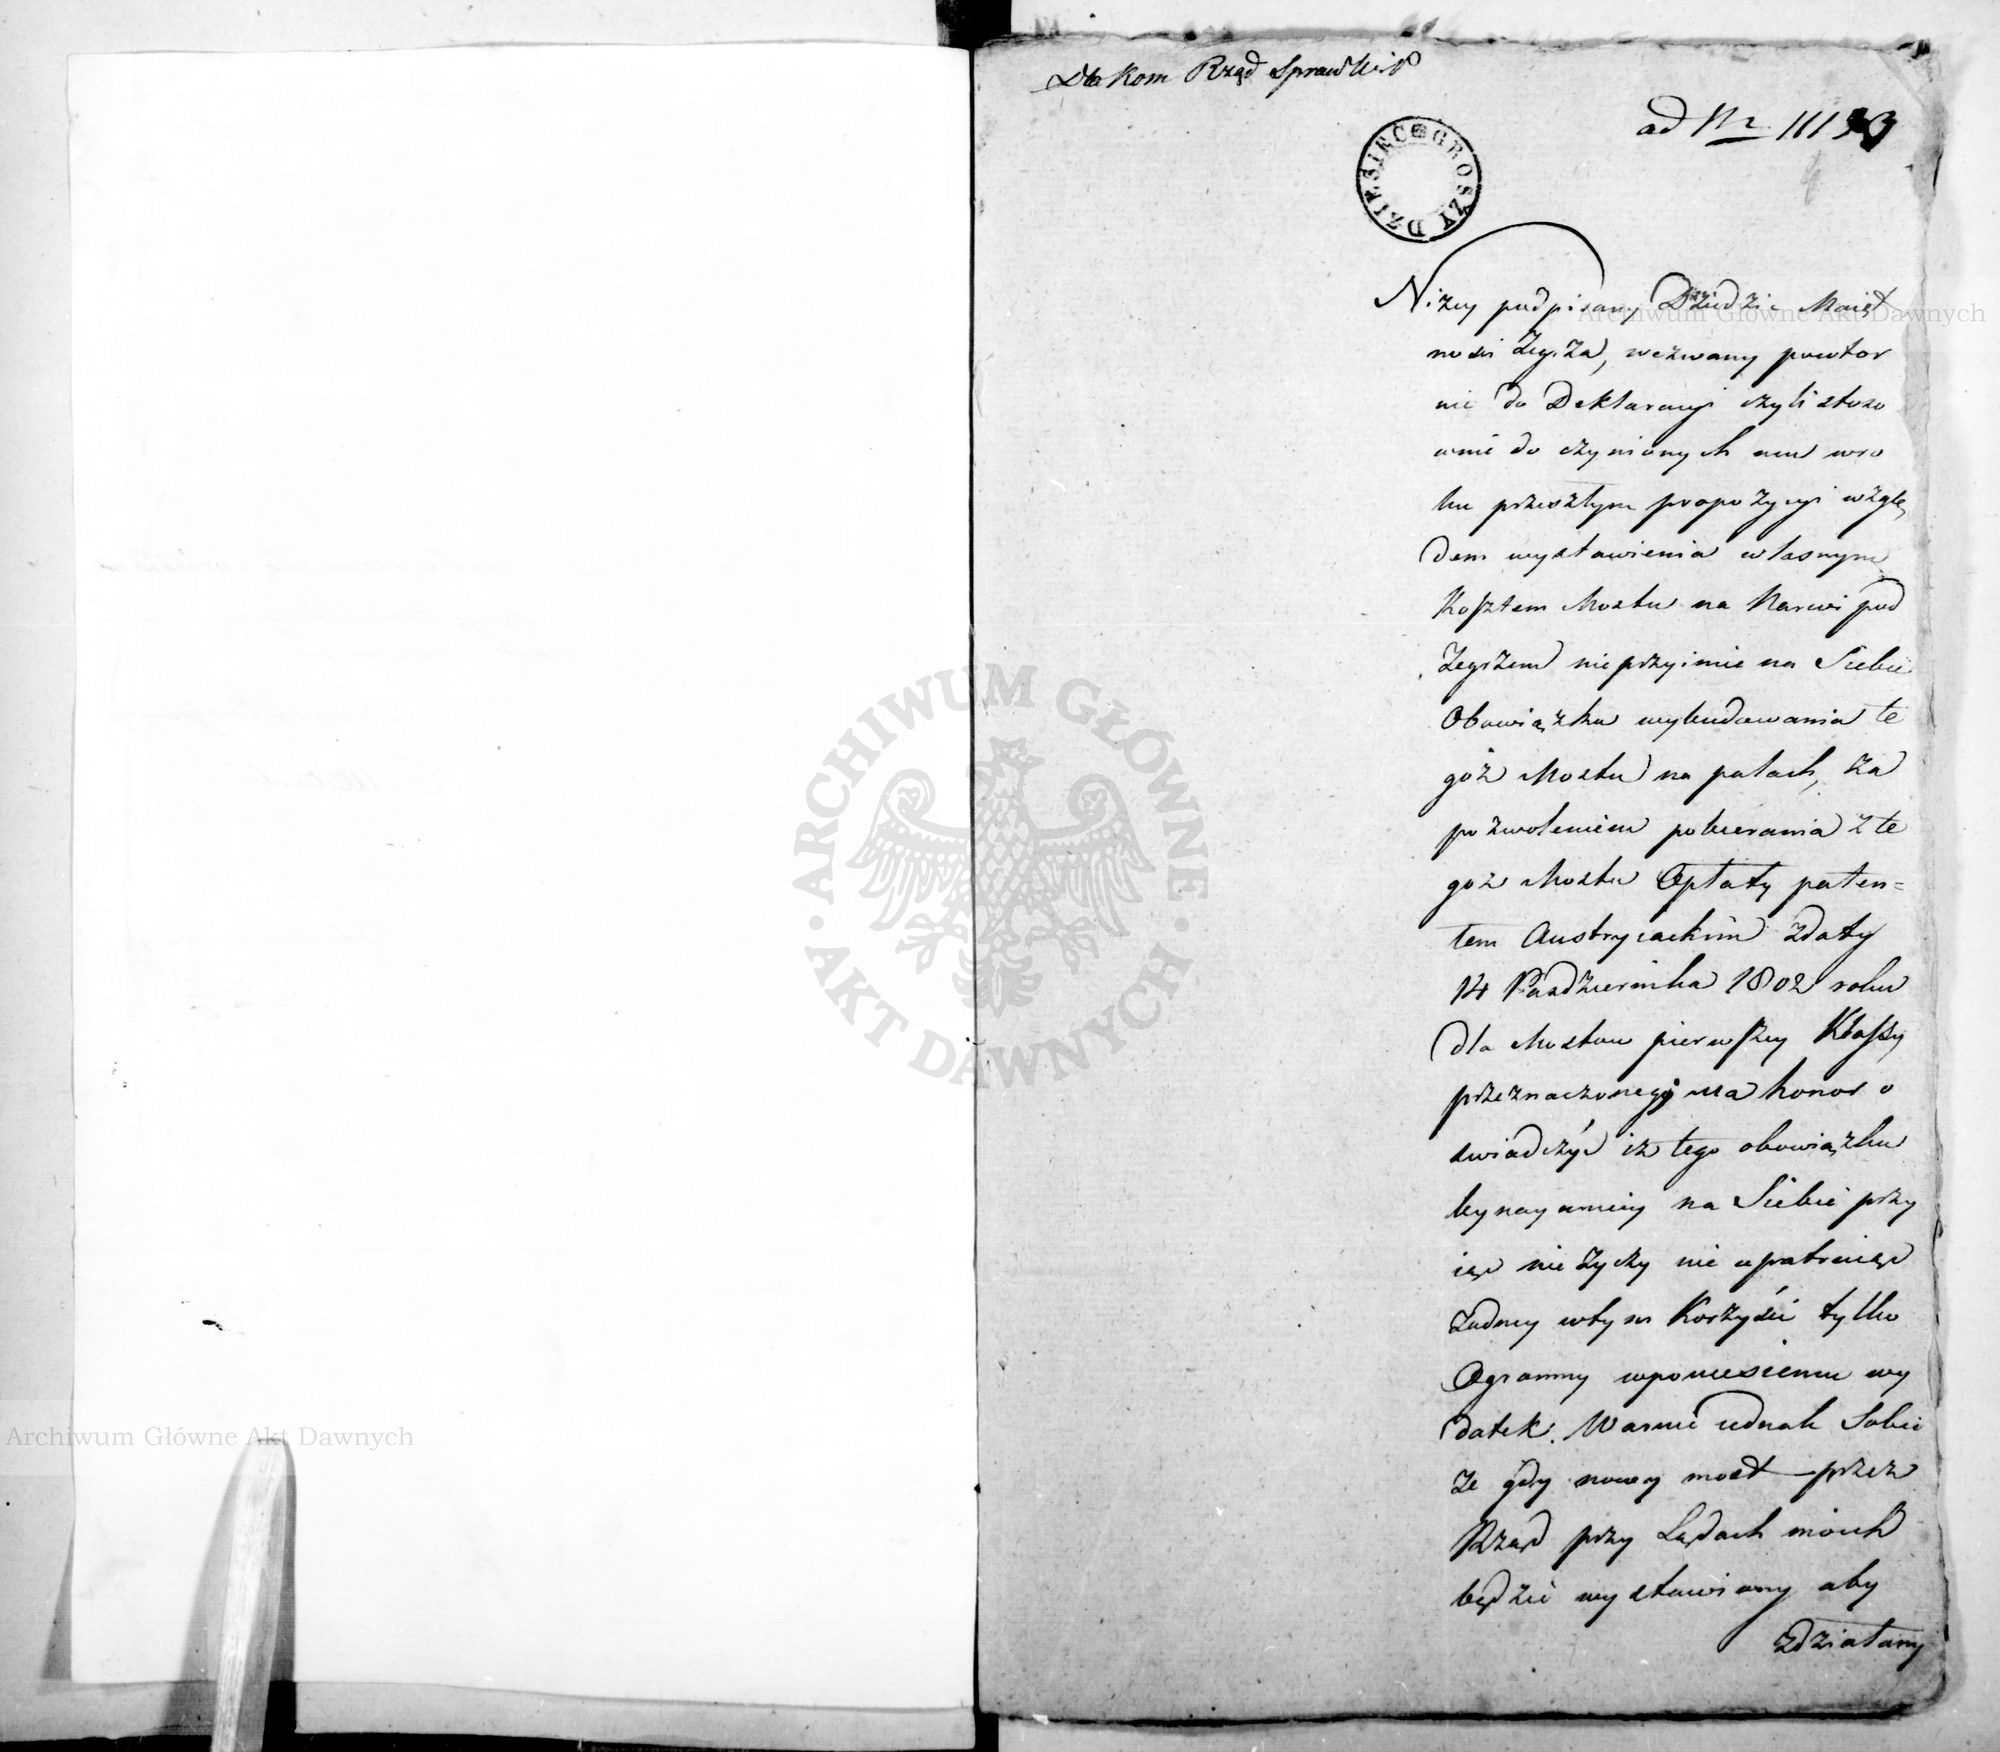 Dla Kom Rząd Spraw
ad Nr 11133
DZIESIĘĆ GROSZY
Niżey podpisany Dziedzic Maięt
ności Zegrza, wezwany powtor
nie do Deklaracyi czyli stoso
wnie do czynionych mu wro
ku przeszłym propozycyi wzglę
dem wystawienia własnym
Kosztem Mostu na Narwi pod
Zegrzem nieprzyimie na Siebie
Obowiązku wybudowania te
goż Mostu na palach, za
pozwoleniem pobierania z te
goż Mostu Opłaty paten=
tem Austryiackim zdaty
14 Pazdziernika 1802 roku
dla Mostow pierwszey Klassy
przeznaczoney ma honor o
swiadczyć iż tego obowiązku
bynaymniey na Siebie przy
iąć nie życzy nie upatruiąc
żadney wtym Korzyści tylko
Ogromny wponiesieniu wy
datek. Warnie iednak Sobie
że gdy nowy most przez
Rząd przy Lądach moich
będzie wystawiony aby
zdziałany
ARCHIWUM GŁÓWNE AKT DAWNYCH
Archiwum Główne Akt Dawnych
Archiwum Główne Akt Dawnych